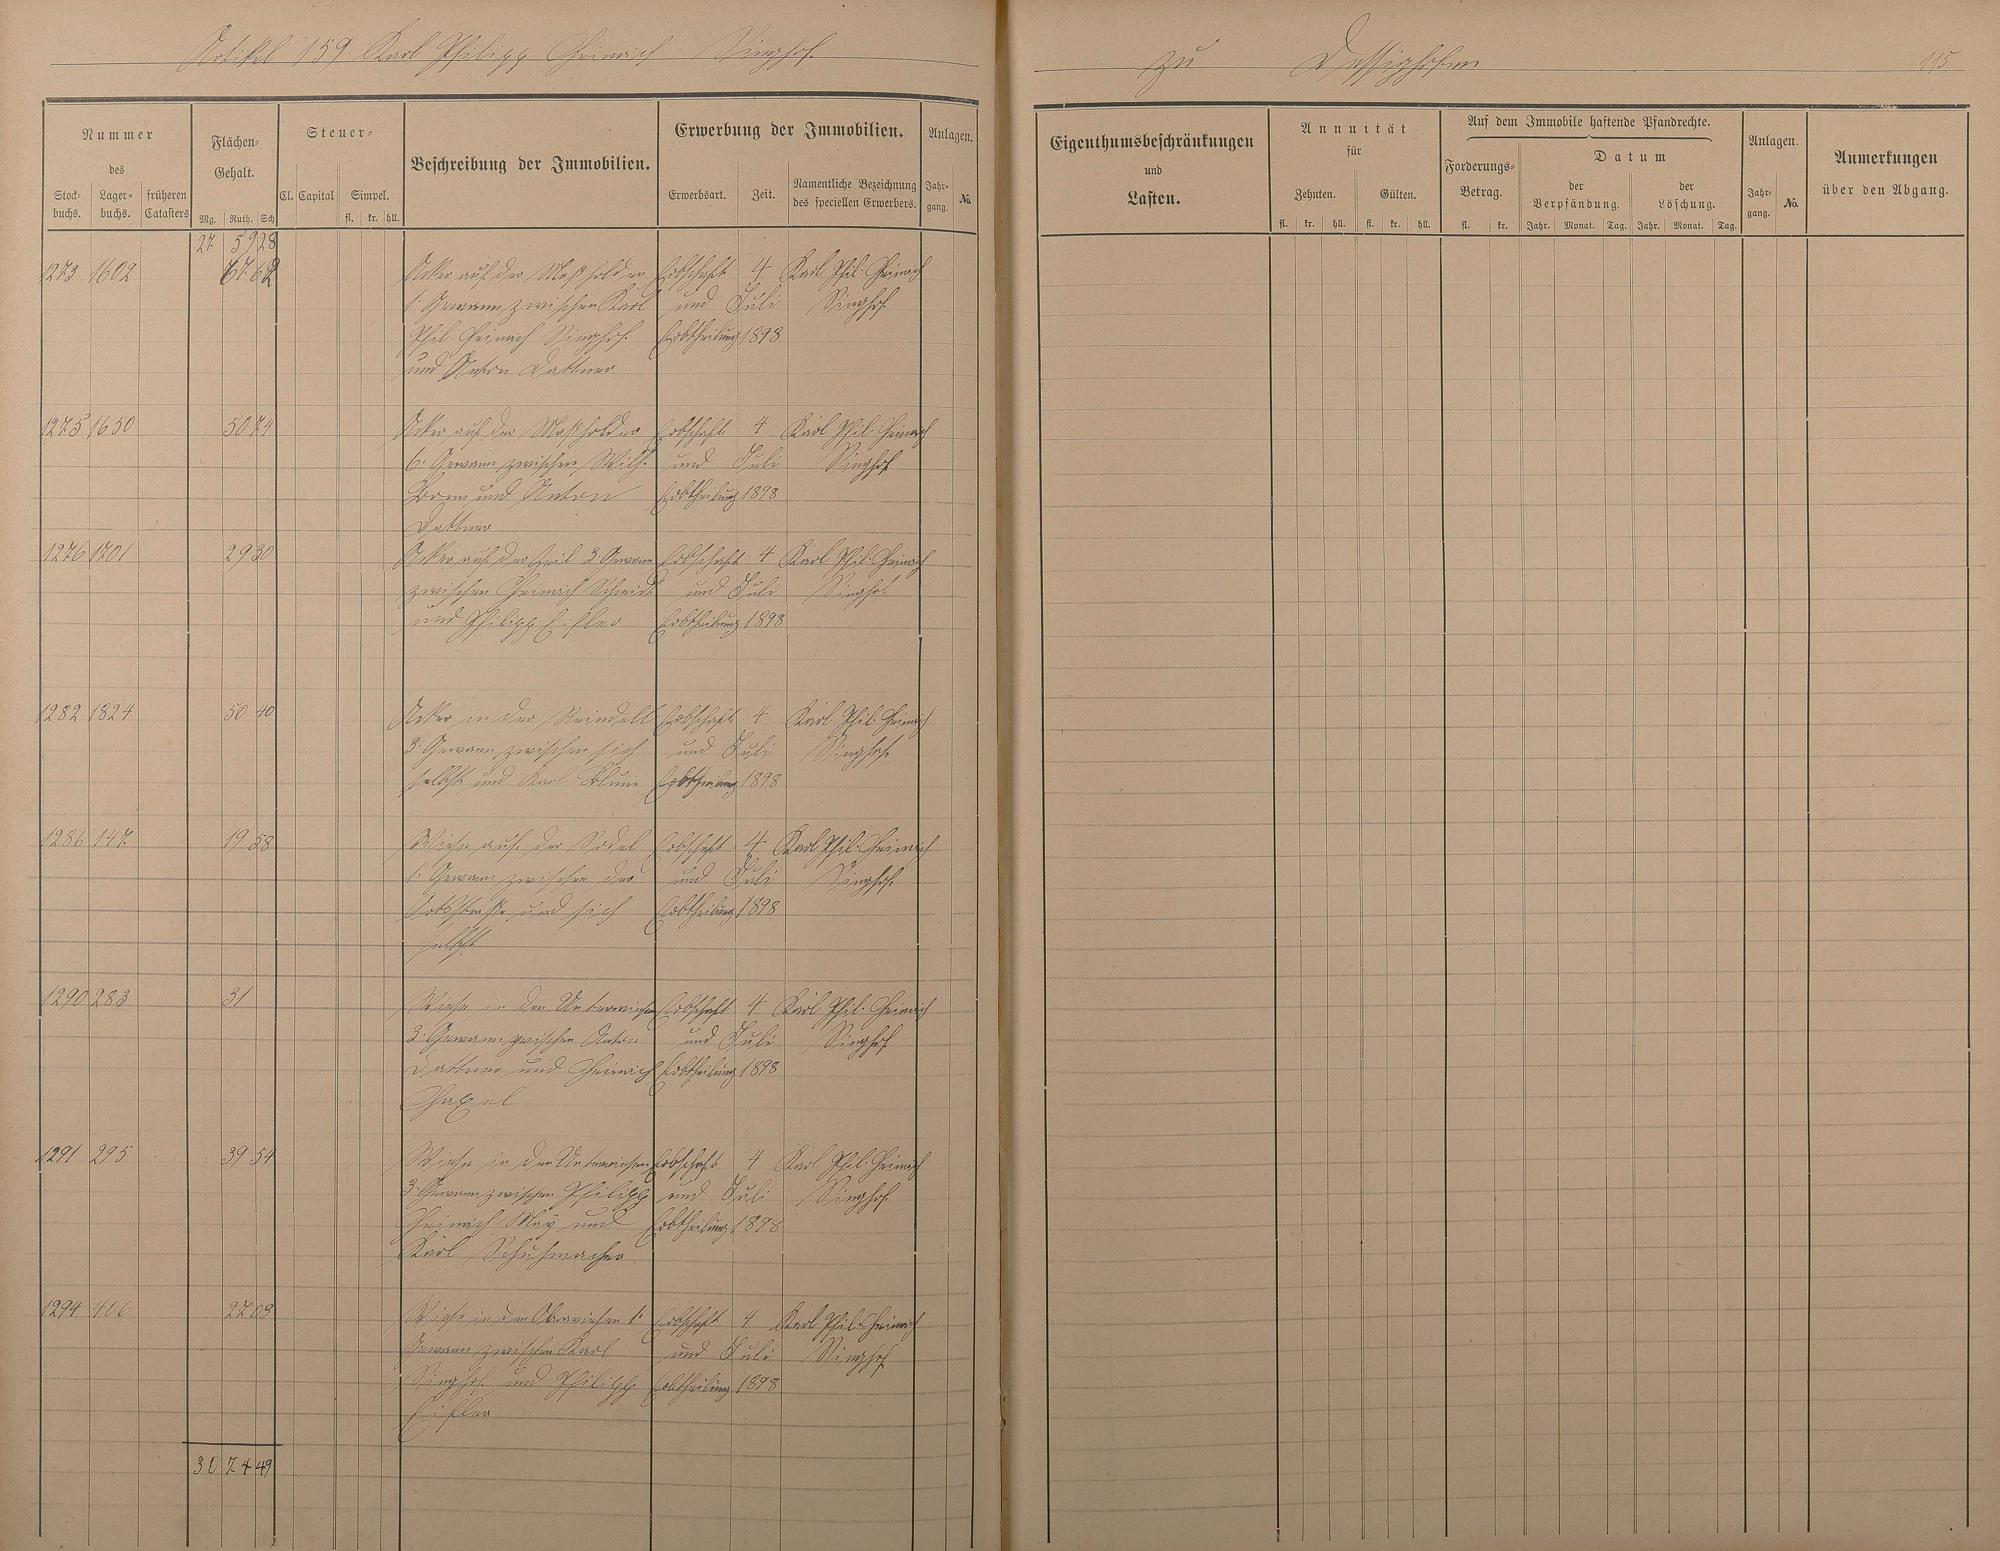 Artikel 159 Karl Philipp Heinrich Singhof.
Nummer
des
Stock-
buchs.
Lager-
buchs.
früheren
Catasters
Flächen-
Gehalt.
Mg. Ruth. Sch
Steuer-
Cl. Capital Simpel.
fl. kr. hll.
Beschreibung der Immobilien.
Erwerbung der Immobilien.
Erwerbsart. Zeit.
Namentliche Bezeichnung
des speciellen Erwerbers.
Anlagen.
Jahr-
gang.
No.
27 59 28
1273 1602 67 62 Acker auf der Maßholder Erbschaft 4 Karl Phil. Heinrich
1. Gewann zwischen Karl und Juli Singhof
Phil. Heinrich Singhof Erbtheilung 1898
und Anton Dattner
1275 1650 50 74 Acker auf der Maßholder Erbschaft 4 Karl Phil. Heinrich
6. Gewann zwischen Wilh. und Juli Singhof
und Anton Erbtheilung 1898
Dattner
1276 1701 29 30 Acker auf der 3. Gewann Erbschaft 4 Karl Phil. Heinrich
zwischen Heinrich Schmidt und Juli Singhof
und Philipp Eisler Erbtheilung 1898
1282 1824 50 40 Acker in der Erbschaft 4 Karl Phil. Heinrich
3. Gewann zwischen sich und Juli Singhof
selbst und Karl Blum Erbtheilung 1898
1286 147 19 58 Wiese auf der Erbschaft 4 Karl Phil. Heinrich
1. Gewann zwischen der und Juli Singhof
und sich Erbtheilung 1898
selbst
1290 283 31 Wiese in den Unterwiesen Erbschaft 4 Karl Phil. Heinrich
3. Gewann zwischen Anton und Juli Singhof
Dattner und Heinrich Erbtheilung 1898
1291 295 39 54 Wiese in den Unterwiesen Erbschaft 4 Karl Phil. Heinrich
3. Gewann zwischen Philipp und Juli Singhof
Heinrich May und Erbtheilung 1898
Karl Schuhmacher
1294 406 27 03 Wiese in den Oberwiesen 1. Erbschaft 4 Karl Phil. Heinrich
Gewann zwischen Karl und Juli Singhof
Singhof und Philipp Erbtheilung 1898
Eisler
30 74 49
zu Dessighofen 115
Eigenthumsbeschränkungen
und
Lasten.
Annuität
für
Zehnten. Gülten.
fl. kr. hll. fl. kr. hll.
Auf dem Immobile haftende Pfandrechte.
Forderungs-
Betrag.
fl. kr.
Datum
der
Verpfändung.
Jahr. Monat. Tag.
der
Löschung.
Jahr. Monat. Tag.
Anlagen.
Jahr-
gang.
No.
Anmerkungen
über den Abgang.